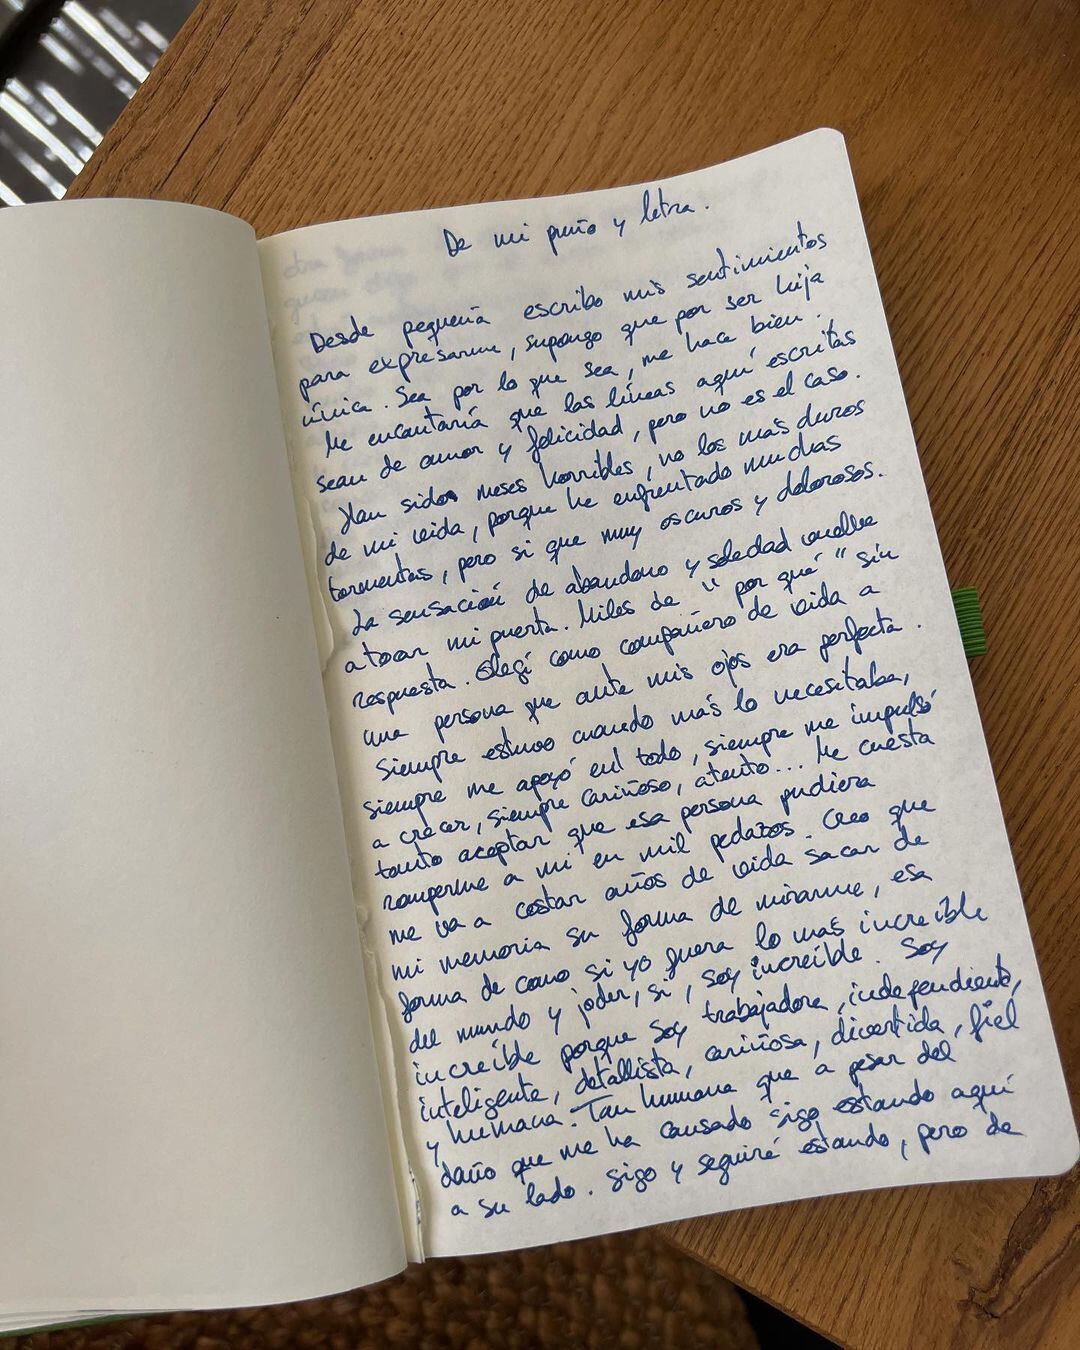 De mi puño y letra.
Desde pequeña escribo mis sentimientos
para expresarme, supongo que por ser hija
única. Sea por lo que sea, me hace bien.
Me encantaría que las líneas aquí escritas
sean de amor y felicidad, pero no es el caso.
Han sido meses horribles, no los mas duros
de mi vida, porque he enfrentado muchas
tormentas, pero si que muy oscuros y dolorosos.
La sensación de abandono y soledad vuelve
a tocar mi puerta. Miles de "por qué" sin
respuesta. Elegí como compañero de vida a
una persona que ante mis ojos era perfecta.
Siempre estuvo cuando más lo necesitaba,
siempre me apoyó en todo, siempre me impulsó
a crecer, siempre cariñoso, atento... Me cuesta
tanto aceptar que esa persona pudiera
romperme a mi en mil pedazos. Creo que
me va a costar años de vida sacar de
mi memoria su forma de mirarme, esa
forma de como si yo fuera lo mas increíble
del mundo y joder, si, soy increíble. Soy
increíble porque soy trabajadora, independiente,
inteligente, detallista, cariñosa, divertida, fiel
y humana. Tan humana que a pesar del
daño que me ha causado sigo estando aquí
a su lado. Sigo y seguiré estando, pero de